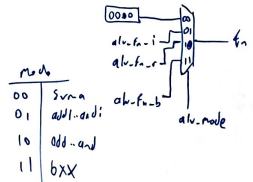 0000
00
01
10
11
alu_fn_i
alu_fn_r
alu_fn_b
fn
alu_mode
modo
00 suma
01 addi..andi
10 add..and
11 bxx